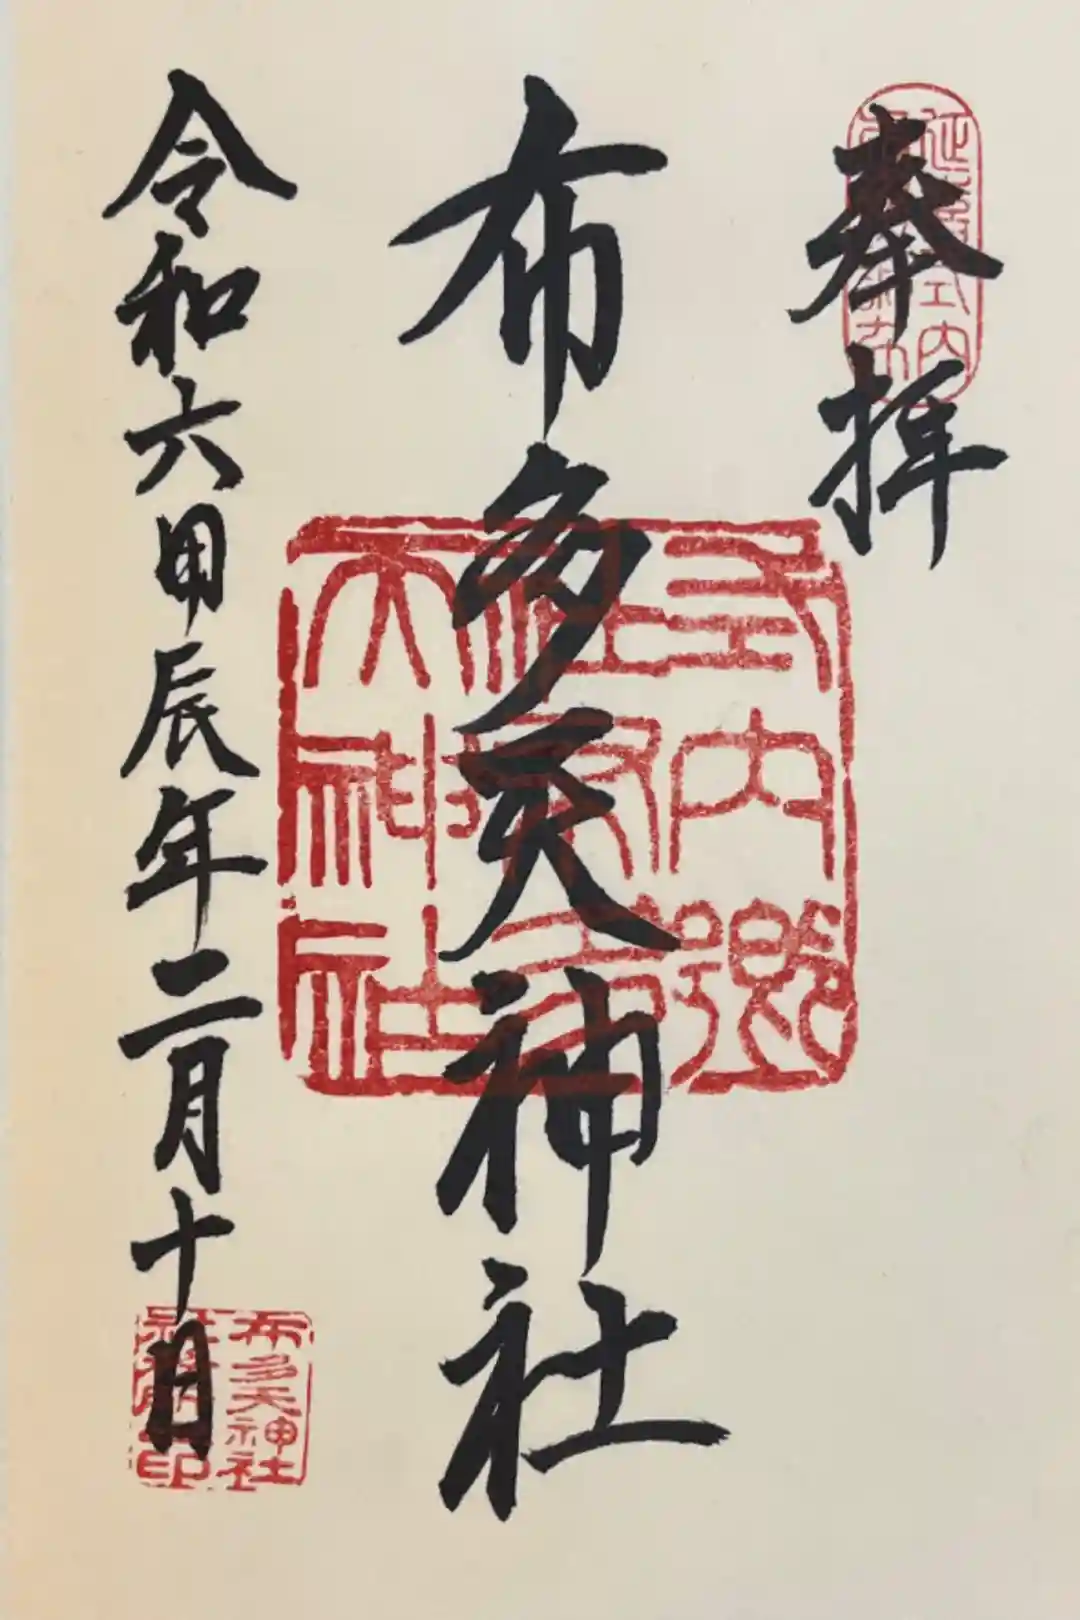 奉拝
布多天神社
令和六甲辰年二月十日
式内郷
社布多
天神社
延喜式内
布多天神
社務所印